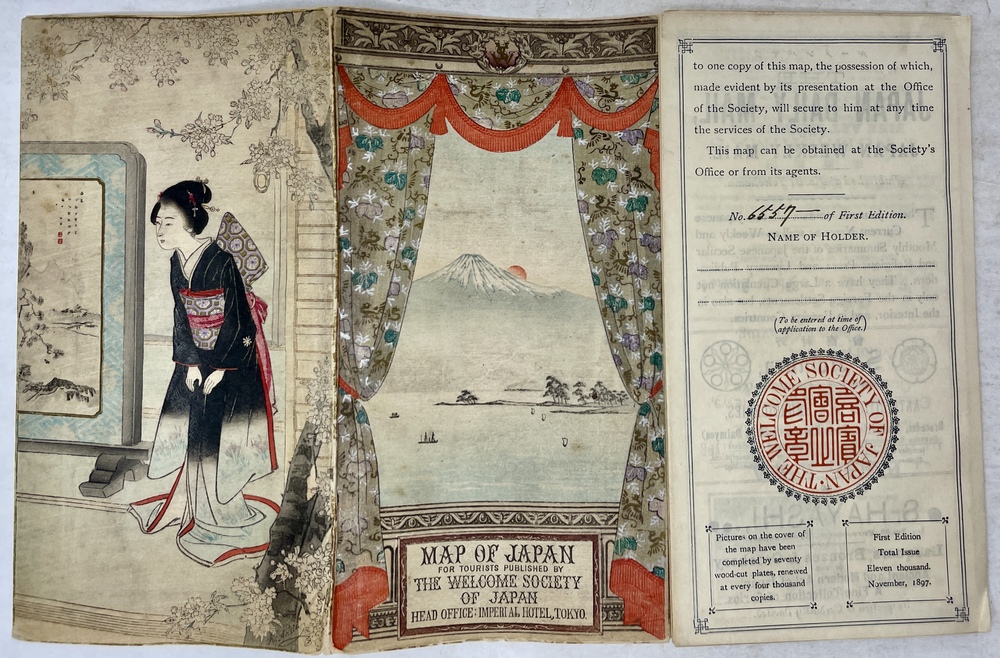 MAP OF JAPAN
FOR TOURISTS PUBLISHED BY
THE WELCOME SOCIETY
OF JAPAN
HEAD OFFICE: IMPERIAL HOTEL, TOKYO.
to one copy of this map, the possession of which,
made evident by its presentation at the Office
of the Society, will secure to him at any time
the services of the Society.
This map can be obtained at the Society's
Office or from its agents.
No. 6557 of First Edition.
NAME OF HOLDER.
(To be entered at time of
application to the Office.)
THE WELCOME SOCIETY OF JAPAN
喜賓
會之
印章
Pictures on the cover of
the map have been
completed by seventy
wood-cut plates, renewed
at every four thousand
copies.
First Edition
Total Issue
Eleven thousand.
November, 1897.